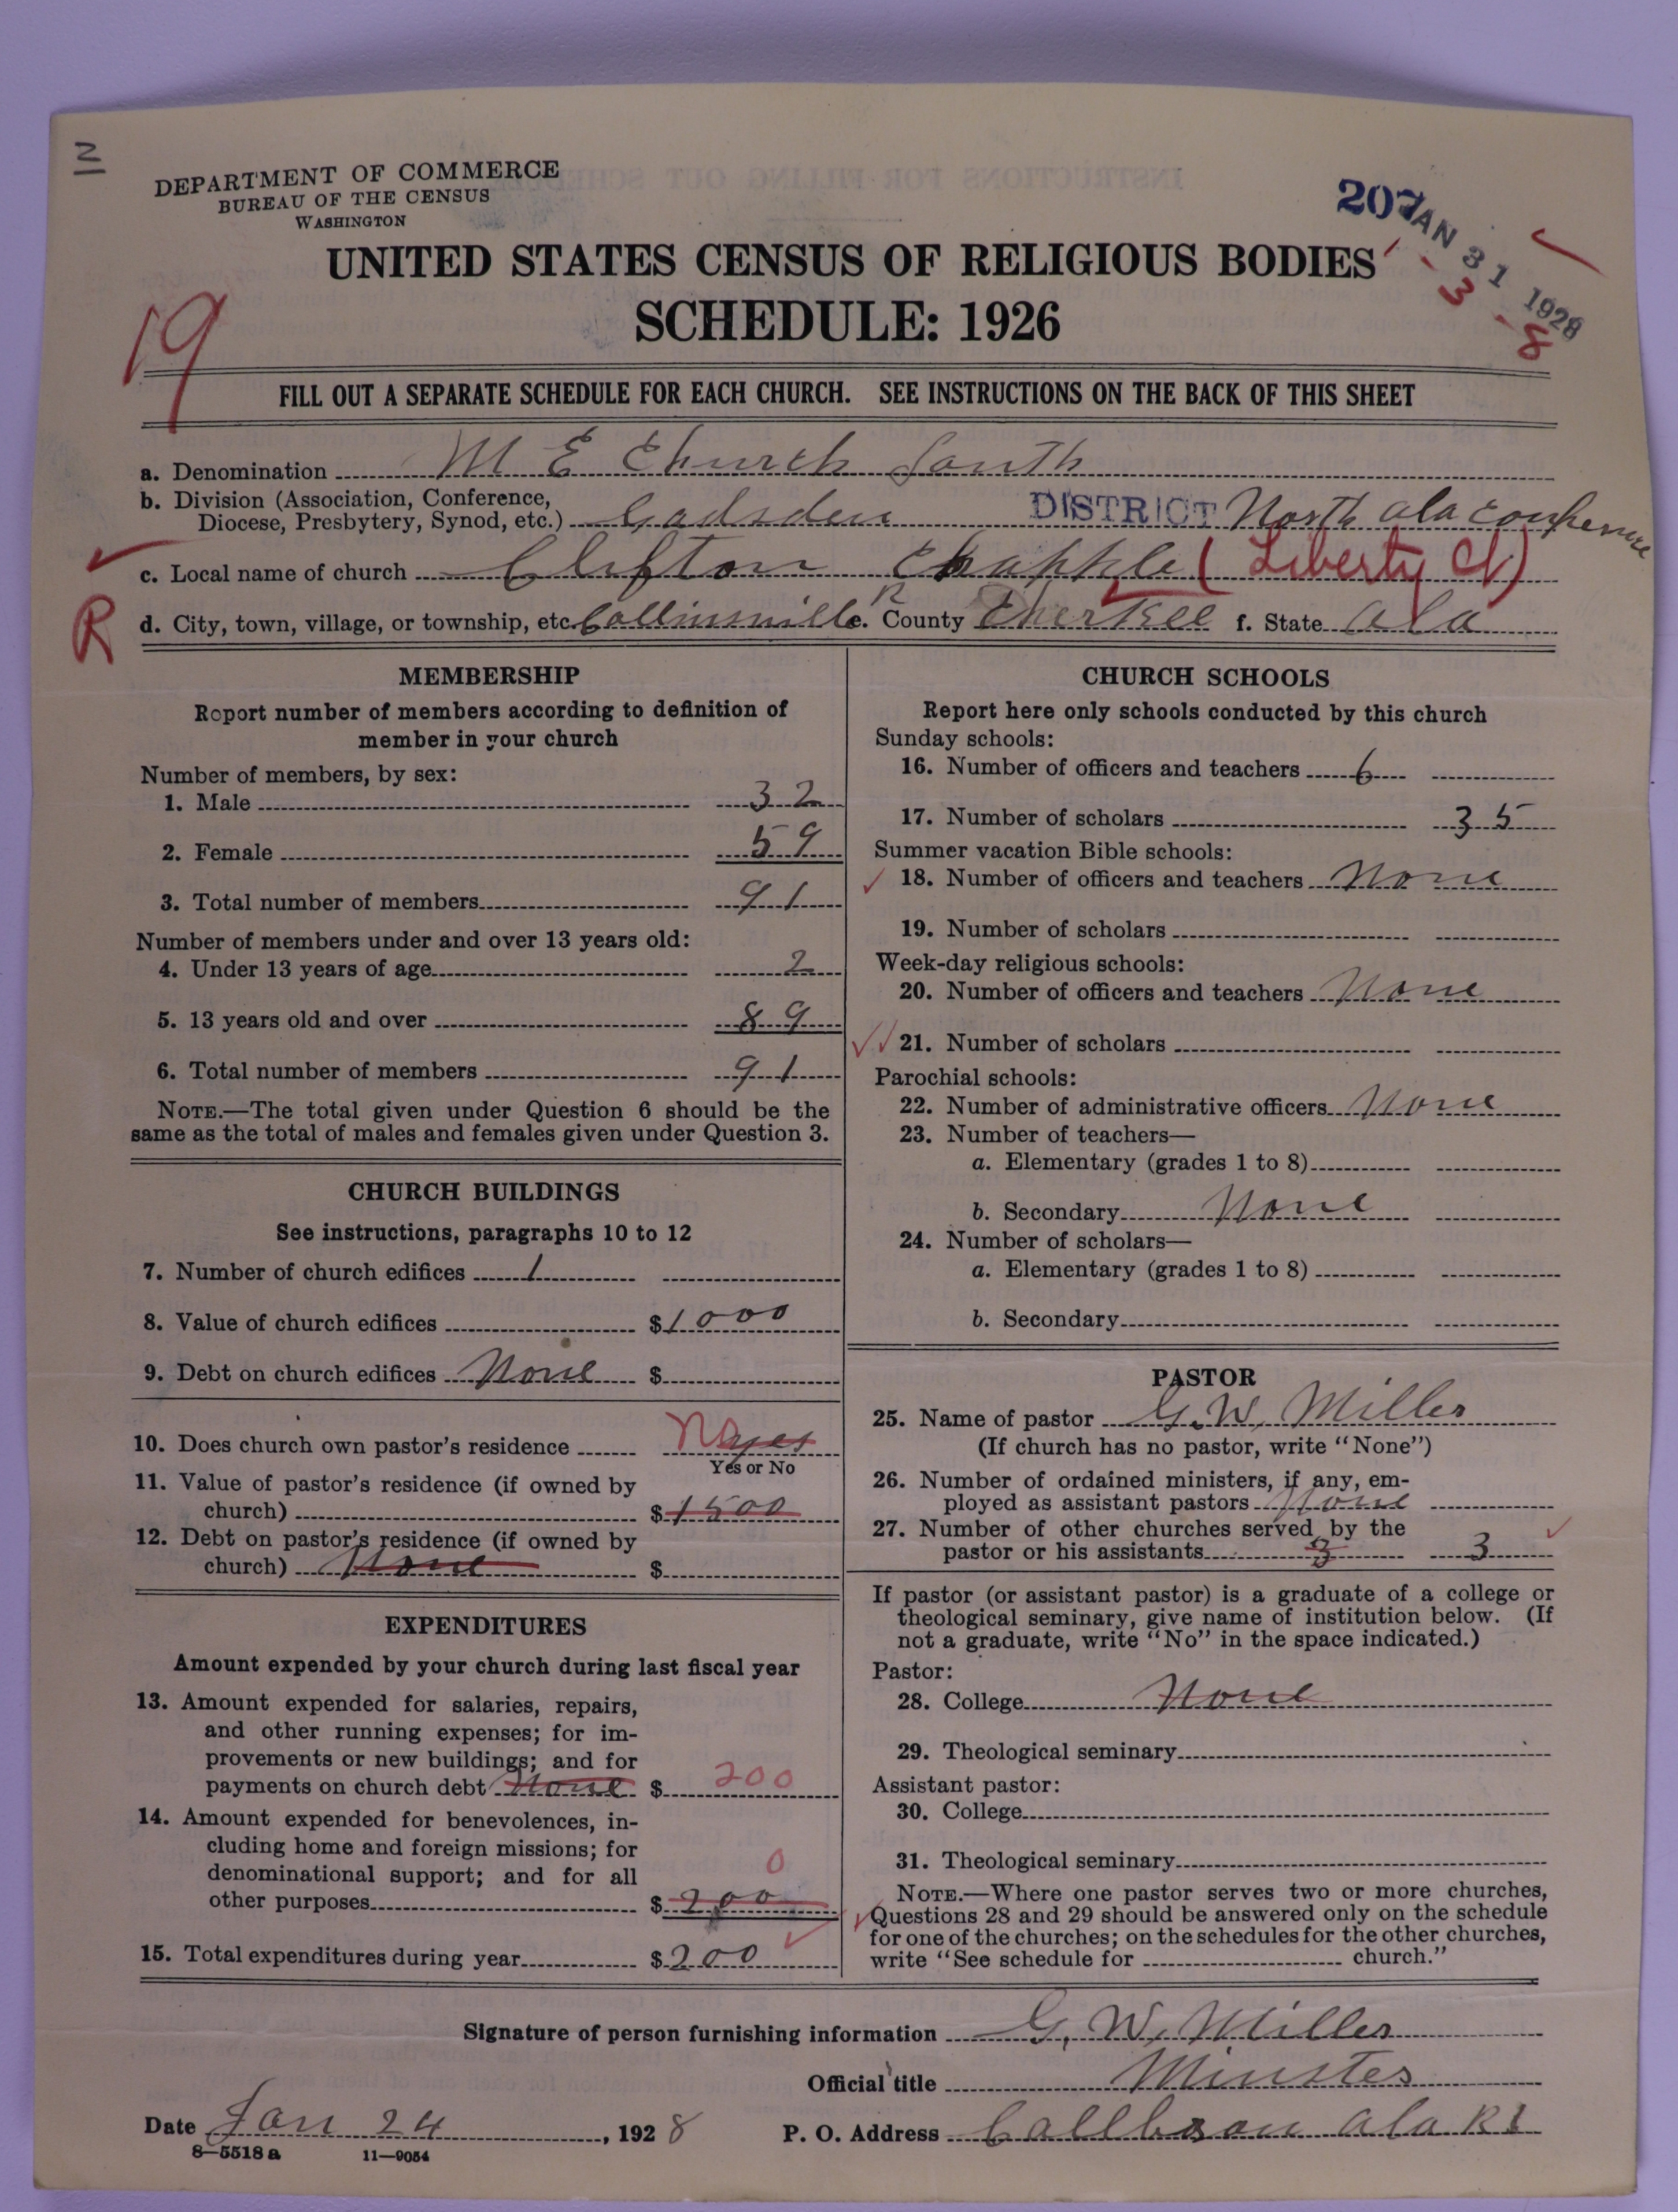 N
DEPARTMENT OF COMMERCE
BUREAU OF THE CENSUS
WASHINGTON
207
JAN 31 1928
3 - 8
UNITED STATES CENSUS OF RELIGIOUS BODIES
SCHEDULE: 1926
19
FILL OUT A SEPARATE SCHEDULE FOR EACH CHURCH. SEE INSTRUCTIONS ON THE BACK OF THIS SHEET
a. Denomination M E Church South
b. Division (Association, Conference,
Diocese, Presbytery, Synod, etc.) Gadsden DISTRICT North ala conference
c. Local name of church Clifton Chapple (Liberty Ct)
R
d. City, town, village, or township, etc. Collinsville e. County Cherkee f. State Ala
MEMBERSHIP
Report number of members according to definition of
member in your church
Number of members, by sex:
1. Male 32
2. Female 59
3. Total number of members 91
Number of members under and over 13 years old:
4. Under 13 years of age 2
5. 13 years old and over 89
6. Total number of members 91
NOTE.—The total given under Question 6 should be the
same as the total of males and females given under Question 3.
CHURCH BUILDINGS
See instructions, paragraphs 10 to 12
7. Number of church edifices 1
8. Value of church edifices $1000
9. Debt on church edifices None $
10. Does church own pastor's residence No yes
Yes or No
11. Value of pastor's residence (if owned by
church) $1500
12. Debt on pastor's residence (if owned by
church) None $
EXPENDITURES
Amount expended by your church during last fiscal year
13. Amount expended for salaries, repairs,
and other running expenses; for im-
provements or new buildings; and for
payments on church debt None $ 200
14. Amount expended for benevolences, in-
cluding home and foreign missions; for
denominational support; and for all 0
other purposes $200
15. Total expenditures during year $200
CHURCH SCHOOLS
Report here only schools conducted by this church
Sunday schools:
16. Number of officers and teachers 6
17. Number of scholars 35
Summer vacation Bible schools:
18. Number of officers and teachers None
19. Number of scholars
Week-day religious schools:
20. Number of officers and teachers None
21. Number of scholars
Parochial schools:
22. Number of administrative officers None
23. Number of teachers—
a. Elementary (grades 1 to 8)
b. Secondary None
24. Number of scholars—
a. Elementary (grades 1 to 8)
b. Secondary
PASTOR
25. Name of pastor G. W. Miller
(If church has no pastor, write "None")
26. Number of ordained ministers, if any, em-
ployed as assistant pastors None
27. Number of other churches served by the
pastor or his assistants 3 3
If pastor (or assistant pastor) is a graduate of a college or
theological seminary, give name of institution below. (If
not a graduate, write "No" in the space indicated.)
Pastor:
28. College None
29. Theological seminary
Assistant pastor:
30. College
31. Theological seminary
NOTE.—Where one pastor serves two or more churches,
Questions 28 and 29 should be answered only on the schedule
for one of the churches; on the schedules for the other churches,
write "See schedule for church."
Signature of person furnishing information G. W. Miller
Official title Minster
Date Jan 24, 1928 P. O. Address Ala R1
8—5518 a 11—9054